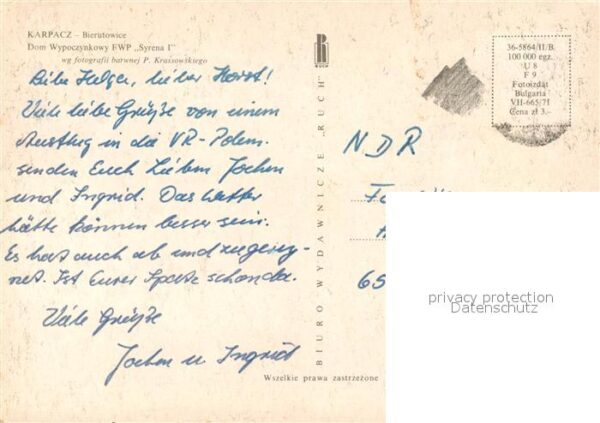 KARPACZ – Bierutowice
Dom Wypoczynkowy FWP „Syrena I”
wg fotografii barwnej P. Krassowskiego
Liebe Helga, lieber Horst!
Viele liebe Grüße von einem
Ausflug in die VR-Polen
senden Euch Lieben Jochen
und Ingrid. Das Wetter
hätte können besser sein.
Es hat auch ab und zu gereg-
net. Ist Eurer Spatz schon da.
Viele Grüße
Jochen u. Ingrid
BIURO WYDAWNICZE „RUCH”
36-5864/II/B.
100 000 egz.
U 8
F 9
Fotoizdat
Bulgaria
VII-665/71
Cena zł 3.–
NDR
65
privacy protection
Datenschutz
Wszelkie prawa zastrzeżone